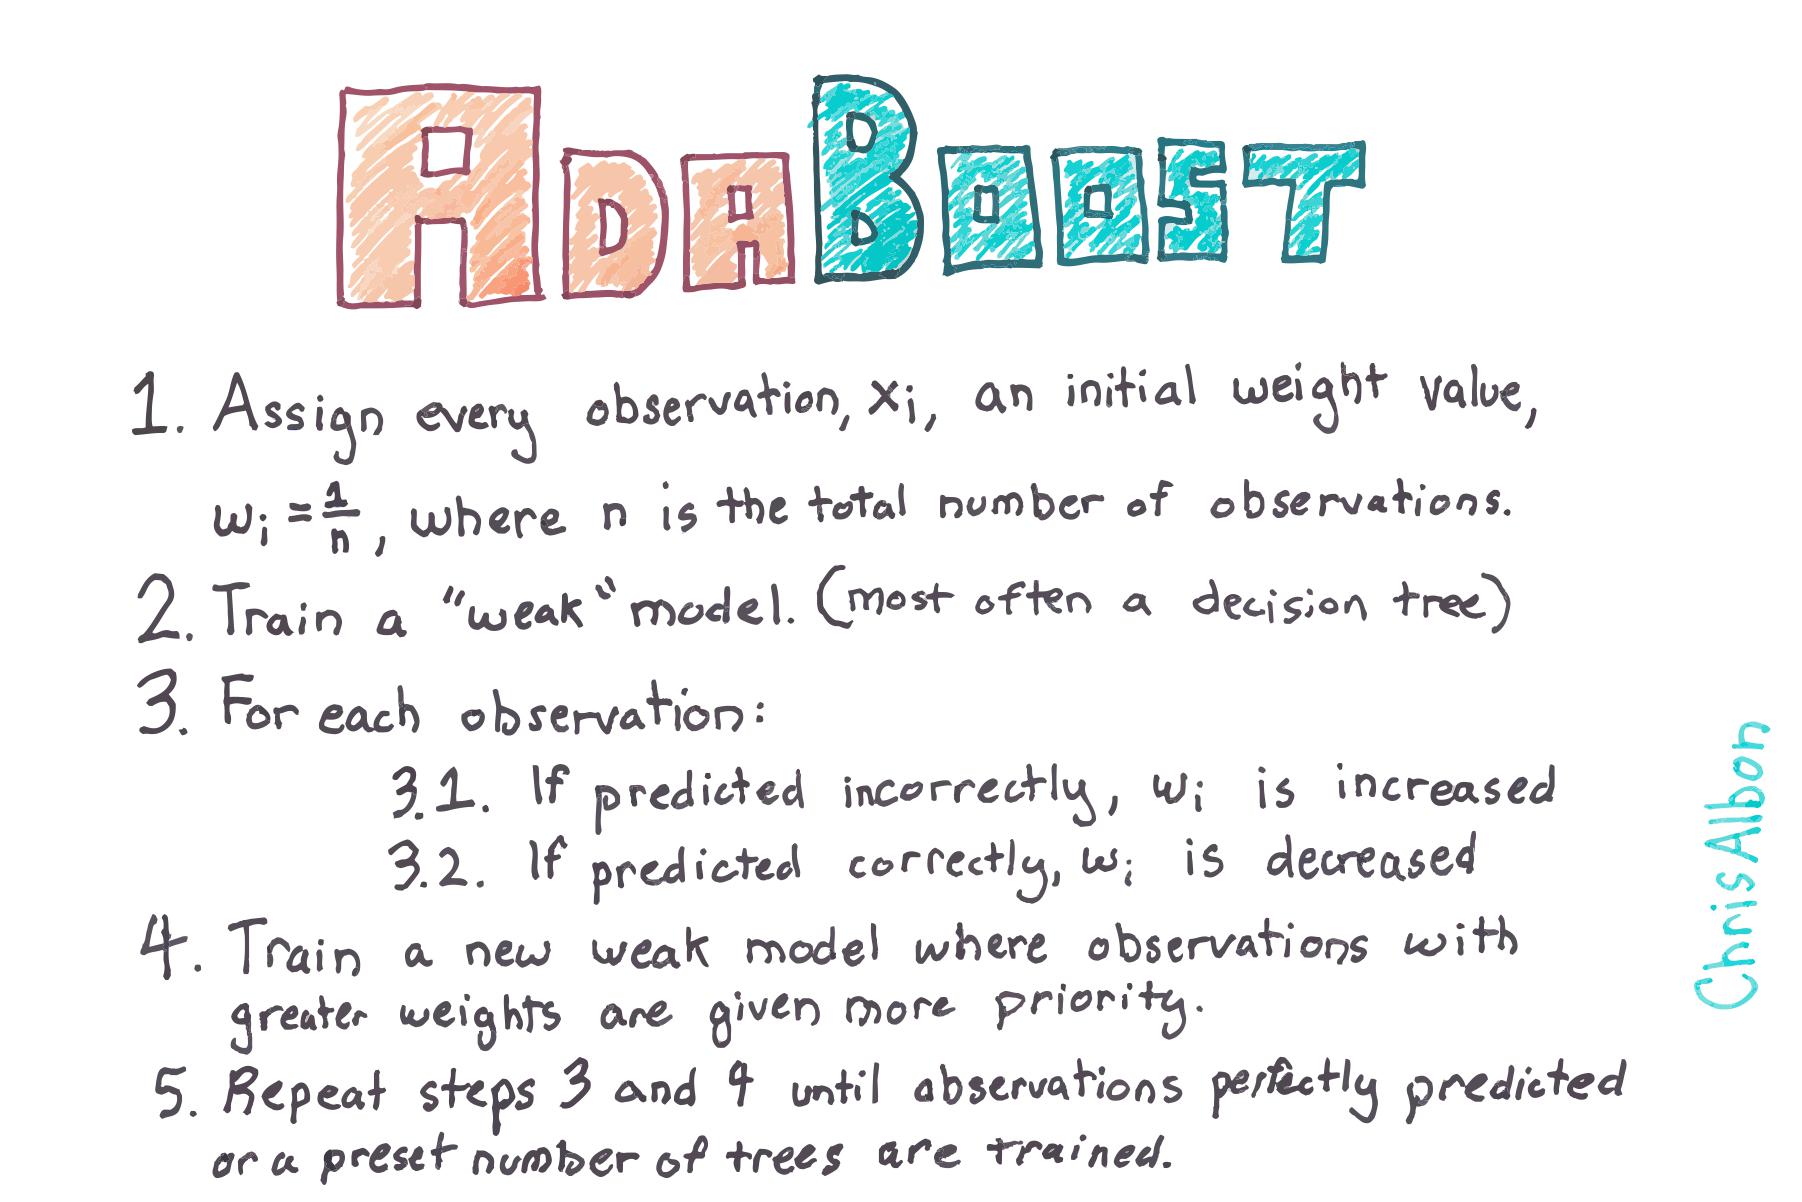 ADABOOST
1. Assign every observation, xᵢ, an initial weight value,
wᵢ = 1/n, where n is the total number of observations.
2. Train a "weak" model. (most often a decision tree)
3. For each observation:
3.1. If predicted incorrectly, wᵢ is increased
3.2. If predicted correctly, wᵢ is decreased
4. Train a new weak model where observations with
greater weights are given more priority.
5. Repeat steps 3 and 4 until observations perfectly predicted
or a preset number of trees are trained.
Chris Albon